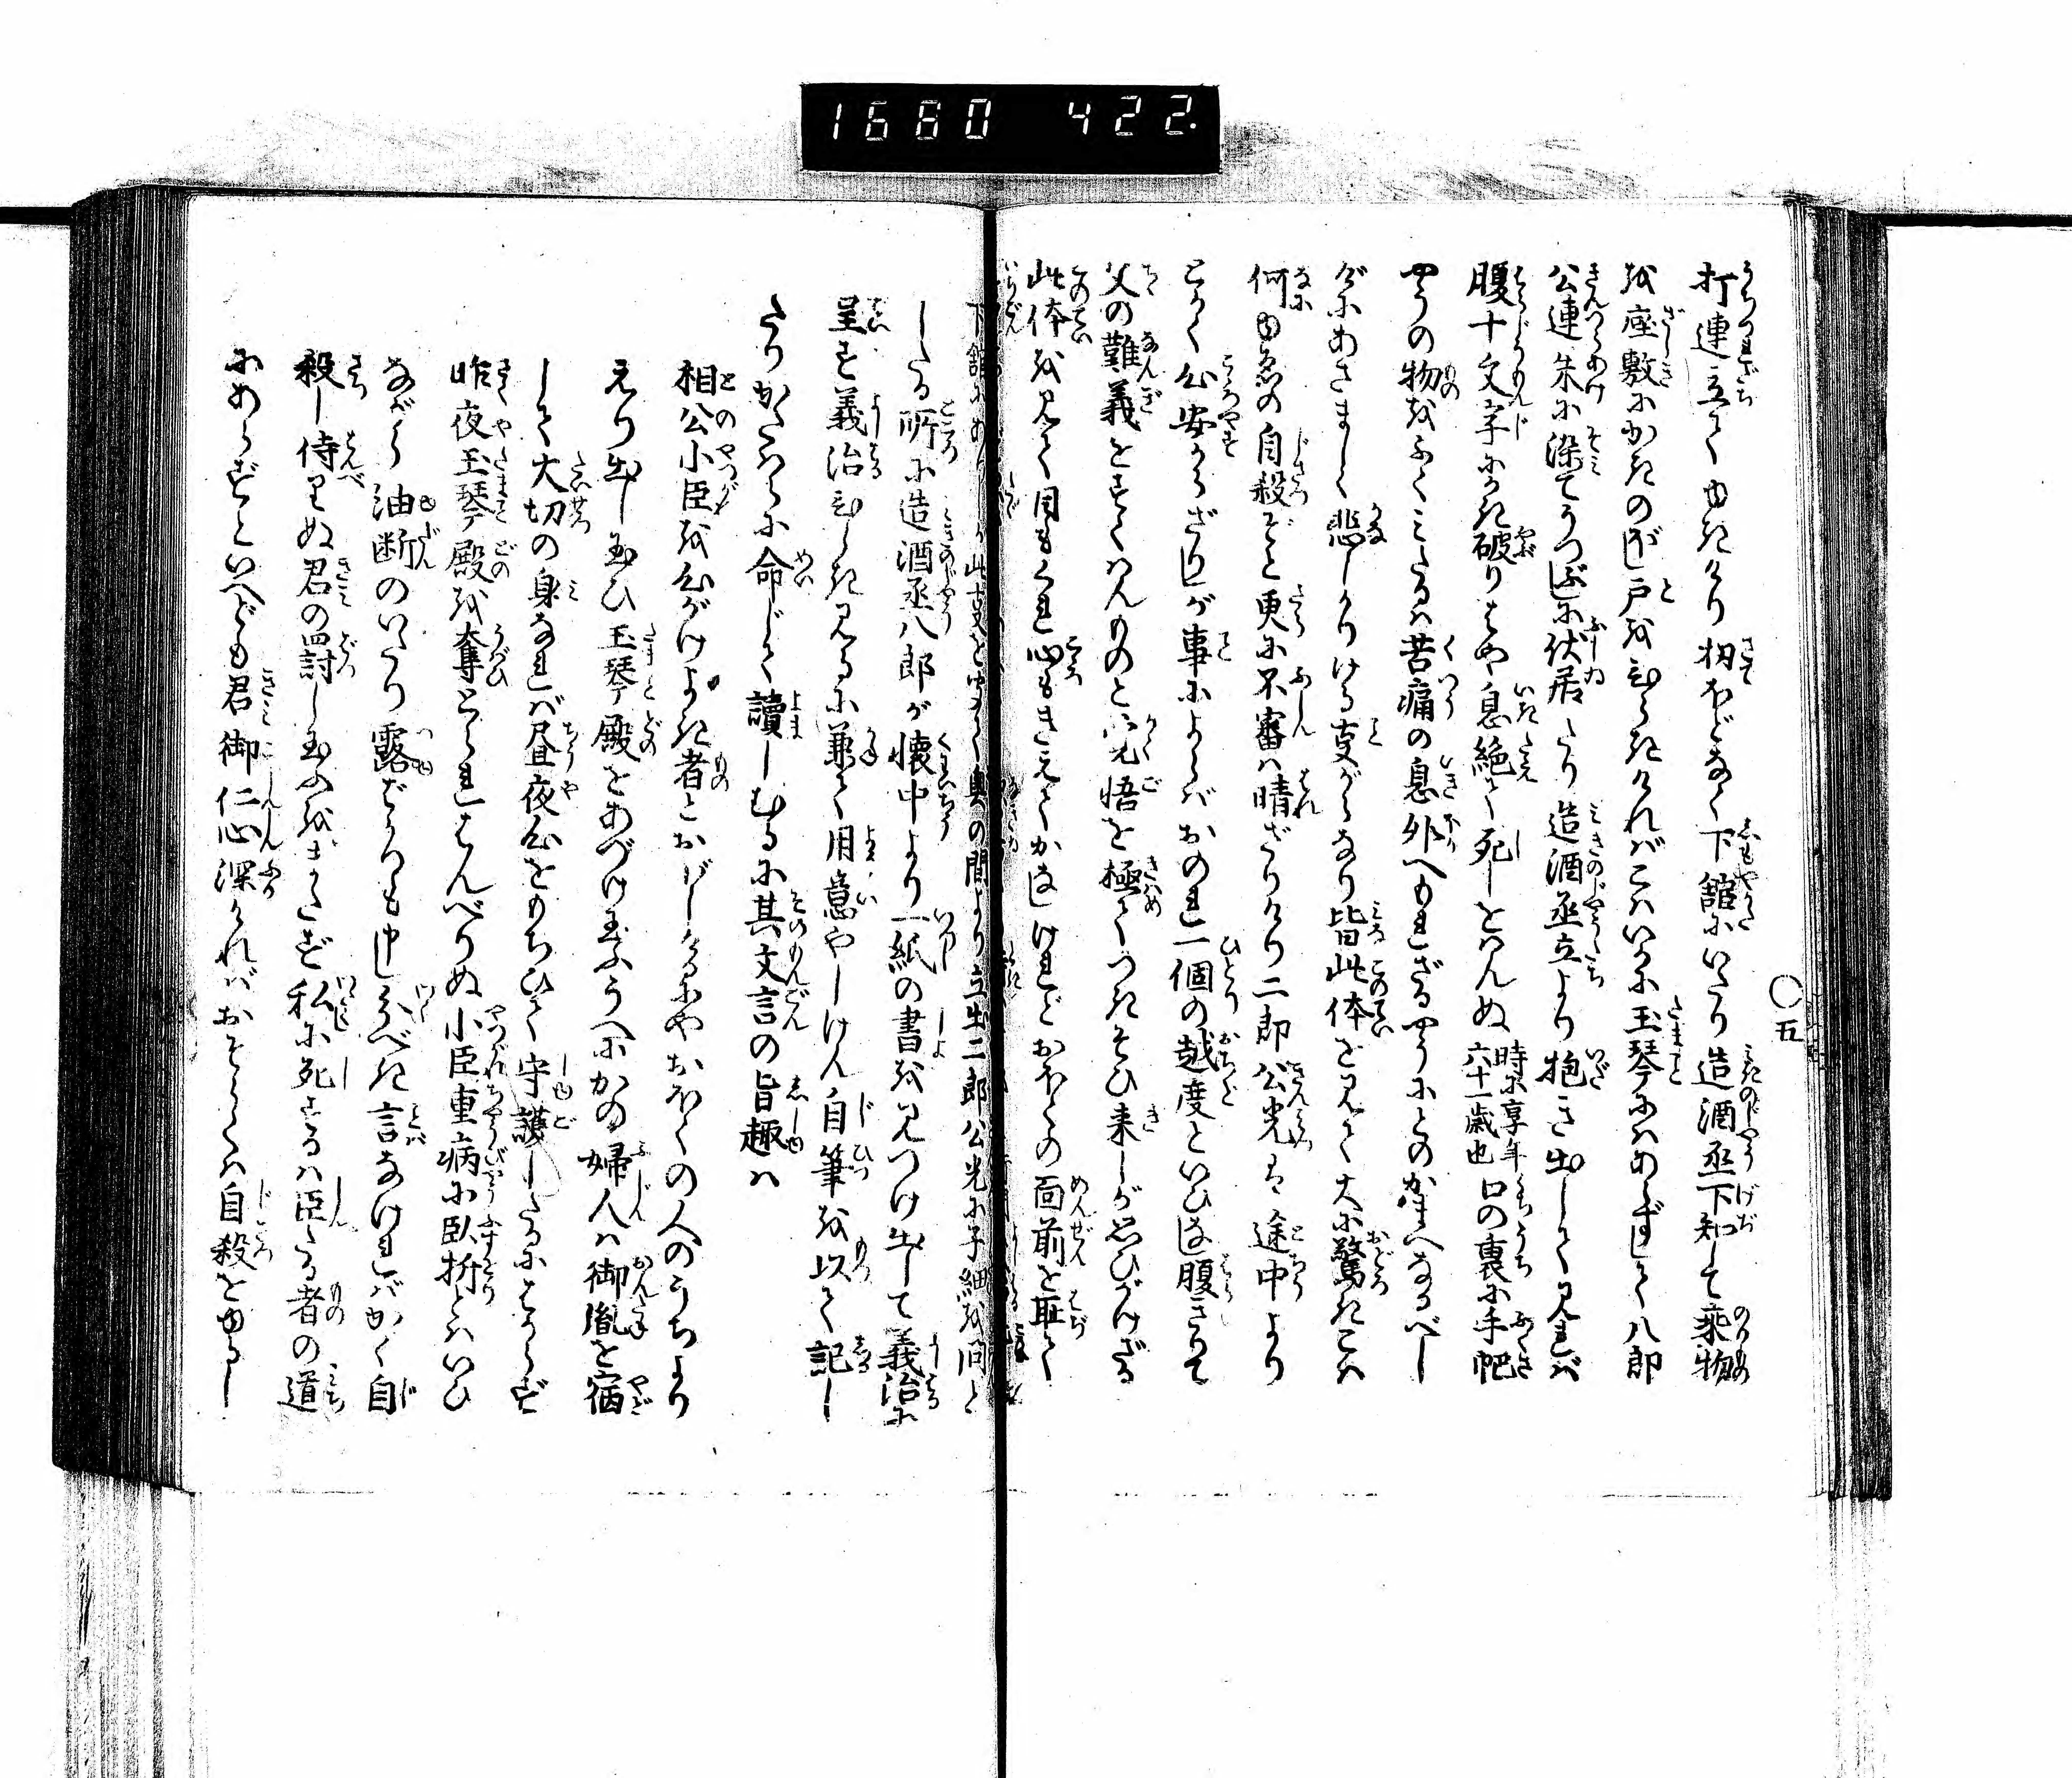 1680 422.
〇五
打連立てゆきけり扨ほどなく下館にいたり造酒丞下知して乗物
を座敷にかきのぼし戸をひらきければこはいかに玉琴にはあらずして八郎
公連朱に染てうつぶしに伏居たり造酒丞立より抱き出して見れば
腹十文字にかき破りはや息絶て死しをはんぬ時に享年六十一歳也口の裏に手帊
やうの物をふくみたるは苦痛の息外へもれざるやうにとのかまへなるべし
げにあさましく悲しかりける事がらなり皆此体を見て大に驚きこは
何ゆゑの自殺ぞと更に不審は晴ざりけり二郎公光は途中より
とかく心安からざりしが事によらばおのれ一個の越度といひなし腹きりて
父の難義をすくはんものと心に覚悟を極てつきそひ来しが思ひがけざる
此体を見て目もくれ心もきえてかなしけれどおほくの面前を恥て
下館にめし此事をきゝて奥の間より立出二郎公光に子細を問と
しる所に造酒丞八郎が懐中より一紙の書を見つけ出して義治に
呈す義治ひらき見るに兼て用意やしけん自筆を以て記し
たりかたはらに命じて読しむるに其文言の旨趣は
相公小臣を心がけよき者とおぼしけるにやおほくの人のうちより
えり出し玉ひ玉琴殿をあづけ玉ふうへにかの婦人は御胤を宿
して大切の身なれば昼夜心をもちひて守護したるにはからず
昨夜玉琴殿を奪とられはんべりぬ小臣重病に臥折とはいひ
ながら油断のいたり露ばかりも申し分べき言なければかく自
殺し侍りぬ君の罰し玉ふをまたず私に死するは臣たる者の道
にあらずといへども君御仁心深ければおそらくは自殺をゆるし